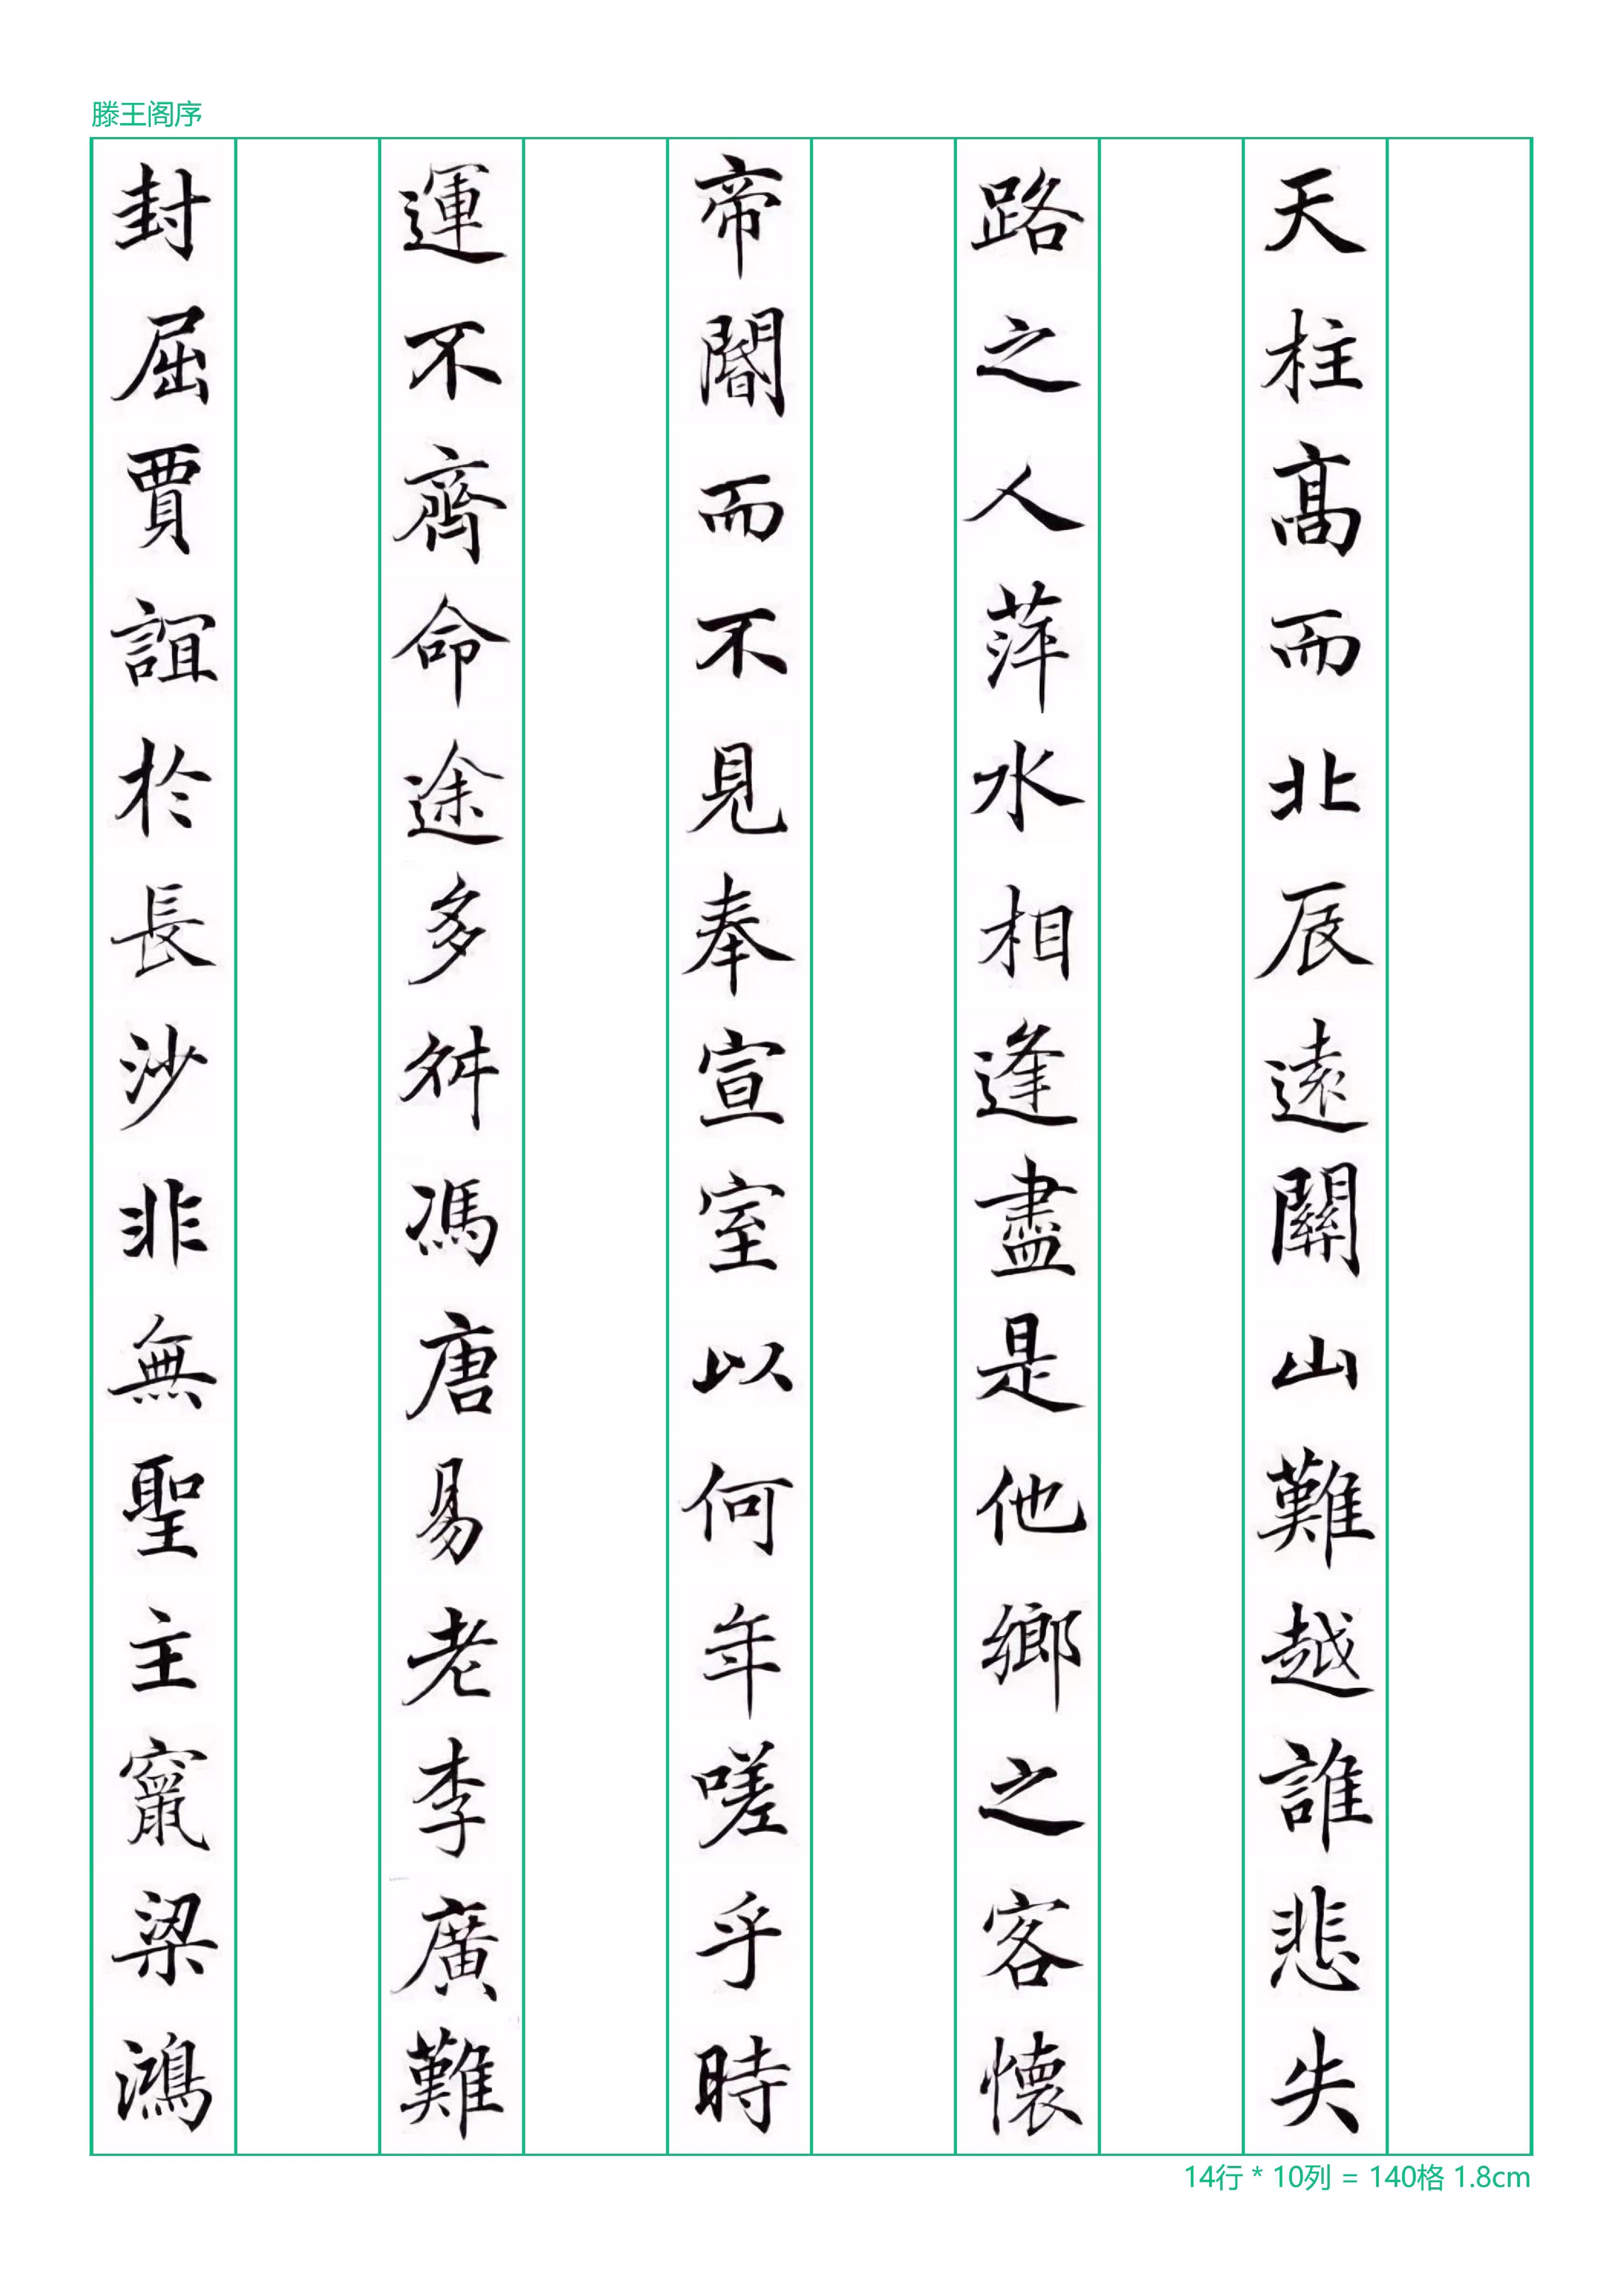 滕王阁序
天柱高而北辰遠關山難越誰悲失
路之人萍水相逢盡是他鄉之客懷
帝閽而不見奉宣室以何年嗟乎時
運不齊命途多舛馮唐易老李廣難
封屈賈誼於長沙非無聖主竄梁鴻
14行 * 10列 = 140格 1.8cm